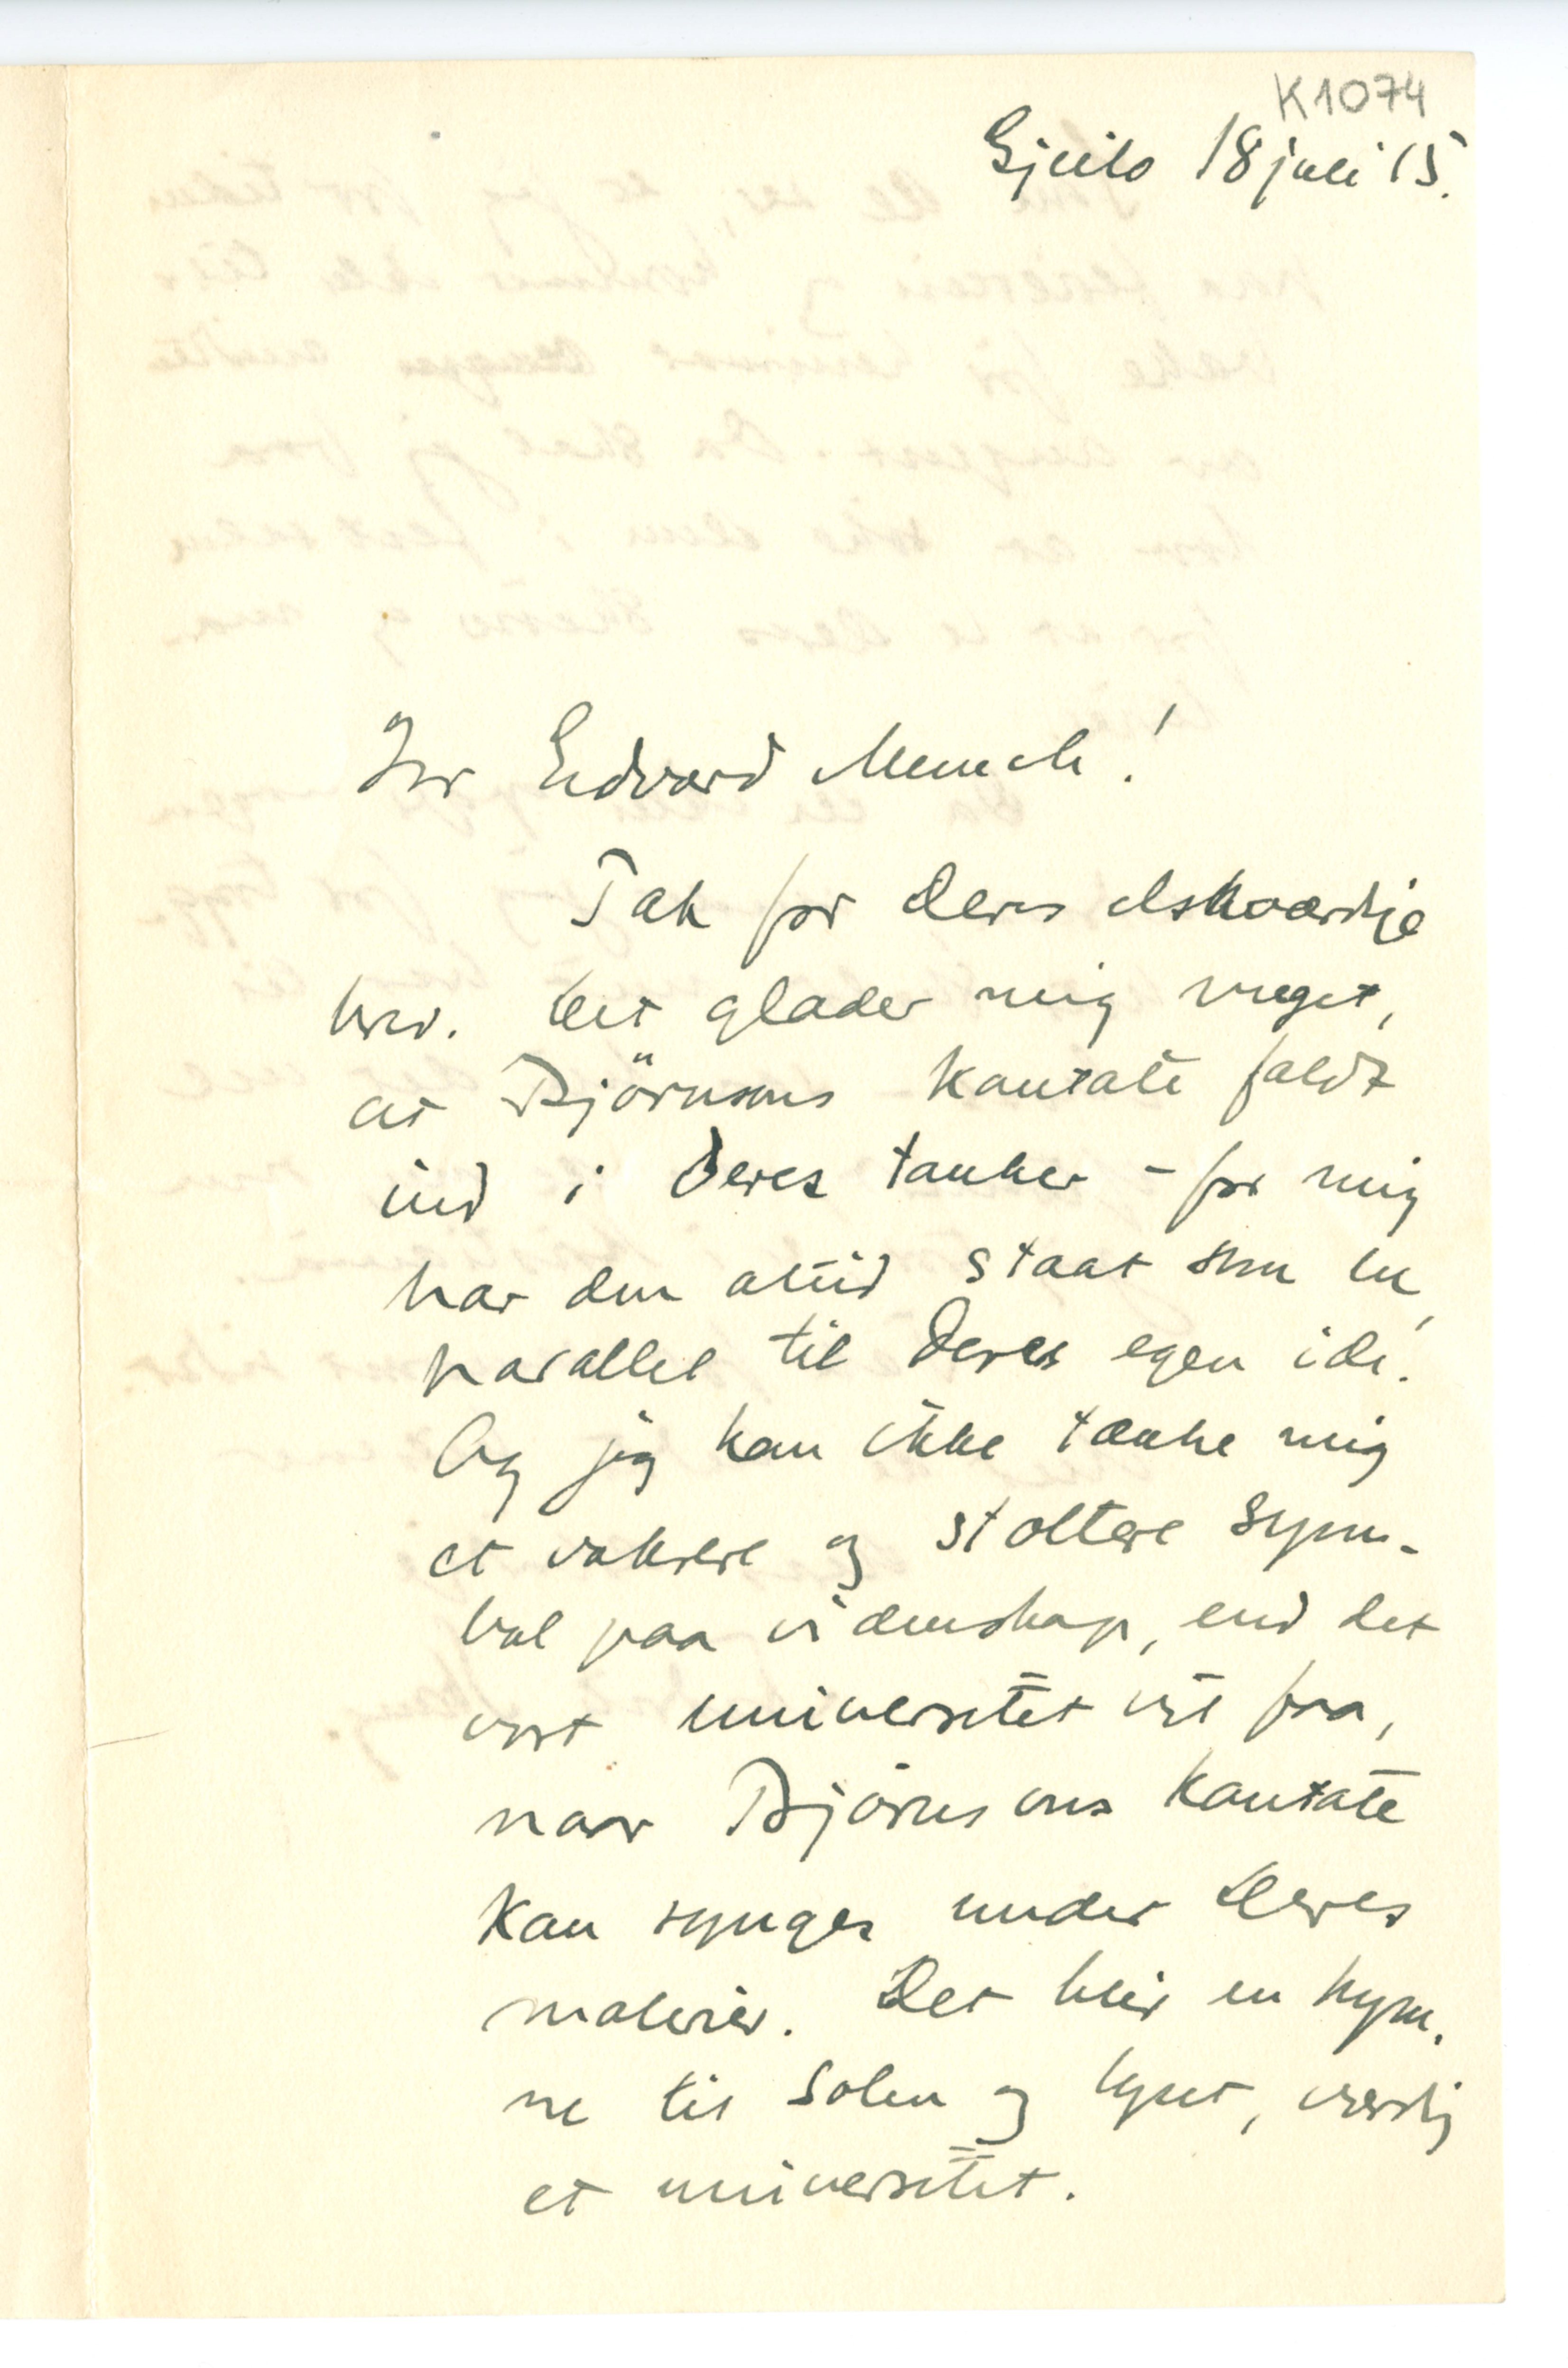 K1074
Gjeilo 18 juli 15.
Hr Edvard Munch!
Tak for Deres elskværdige
brev. Det glæder mig meget,
at Björnsons kantate faldt
ind i Deres tanker – for mig
har den altid staat som en
parallel til Deres egen idé.
Og jeg kan ikke tænke mig
et vakrere og stoltere sym-
bol paa videnskap, end det
vort universitet vil faa,
naar Björnsons kantate
kan synges under Deres
malerier. Det blir en hym-
ne til solen og lyset, værdig
et universitet.